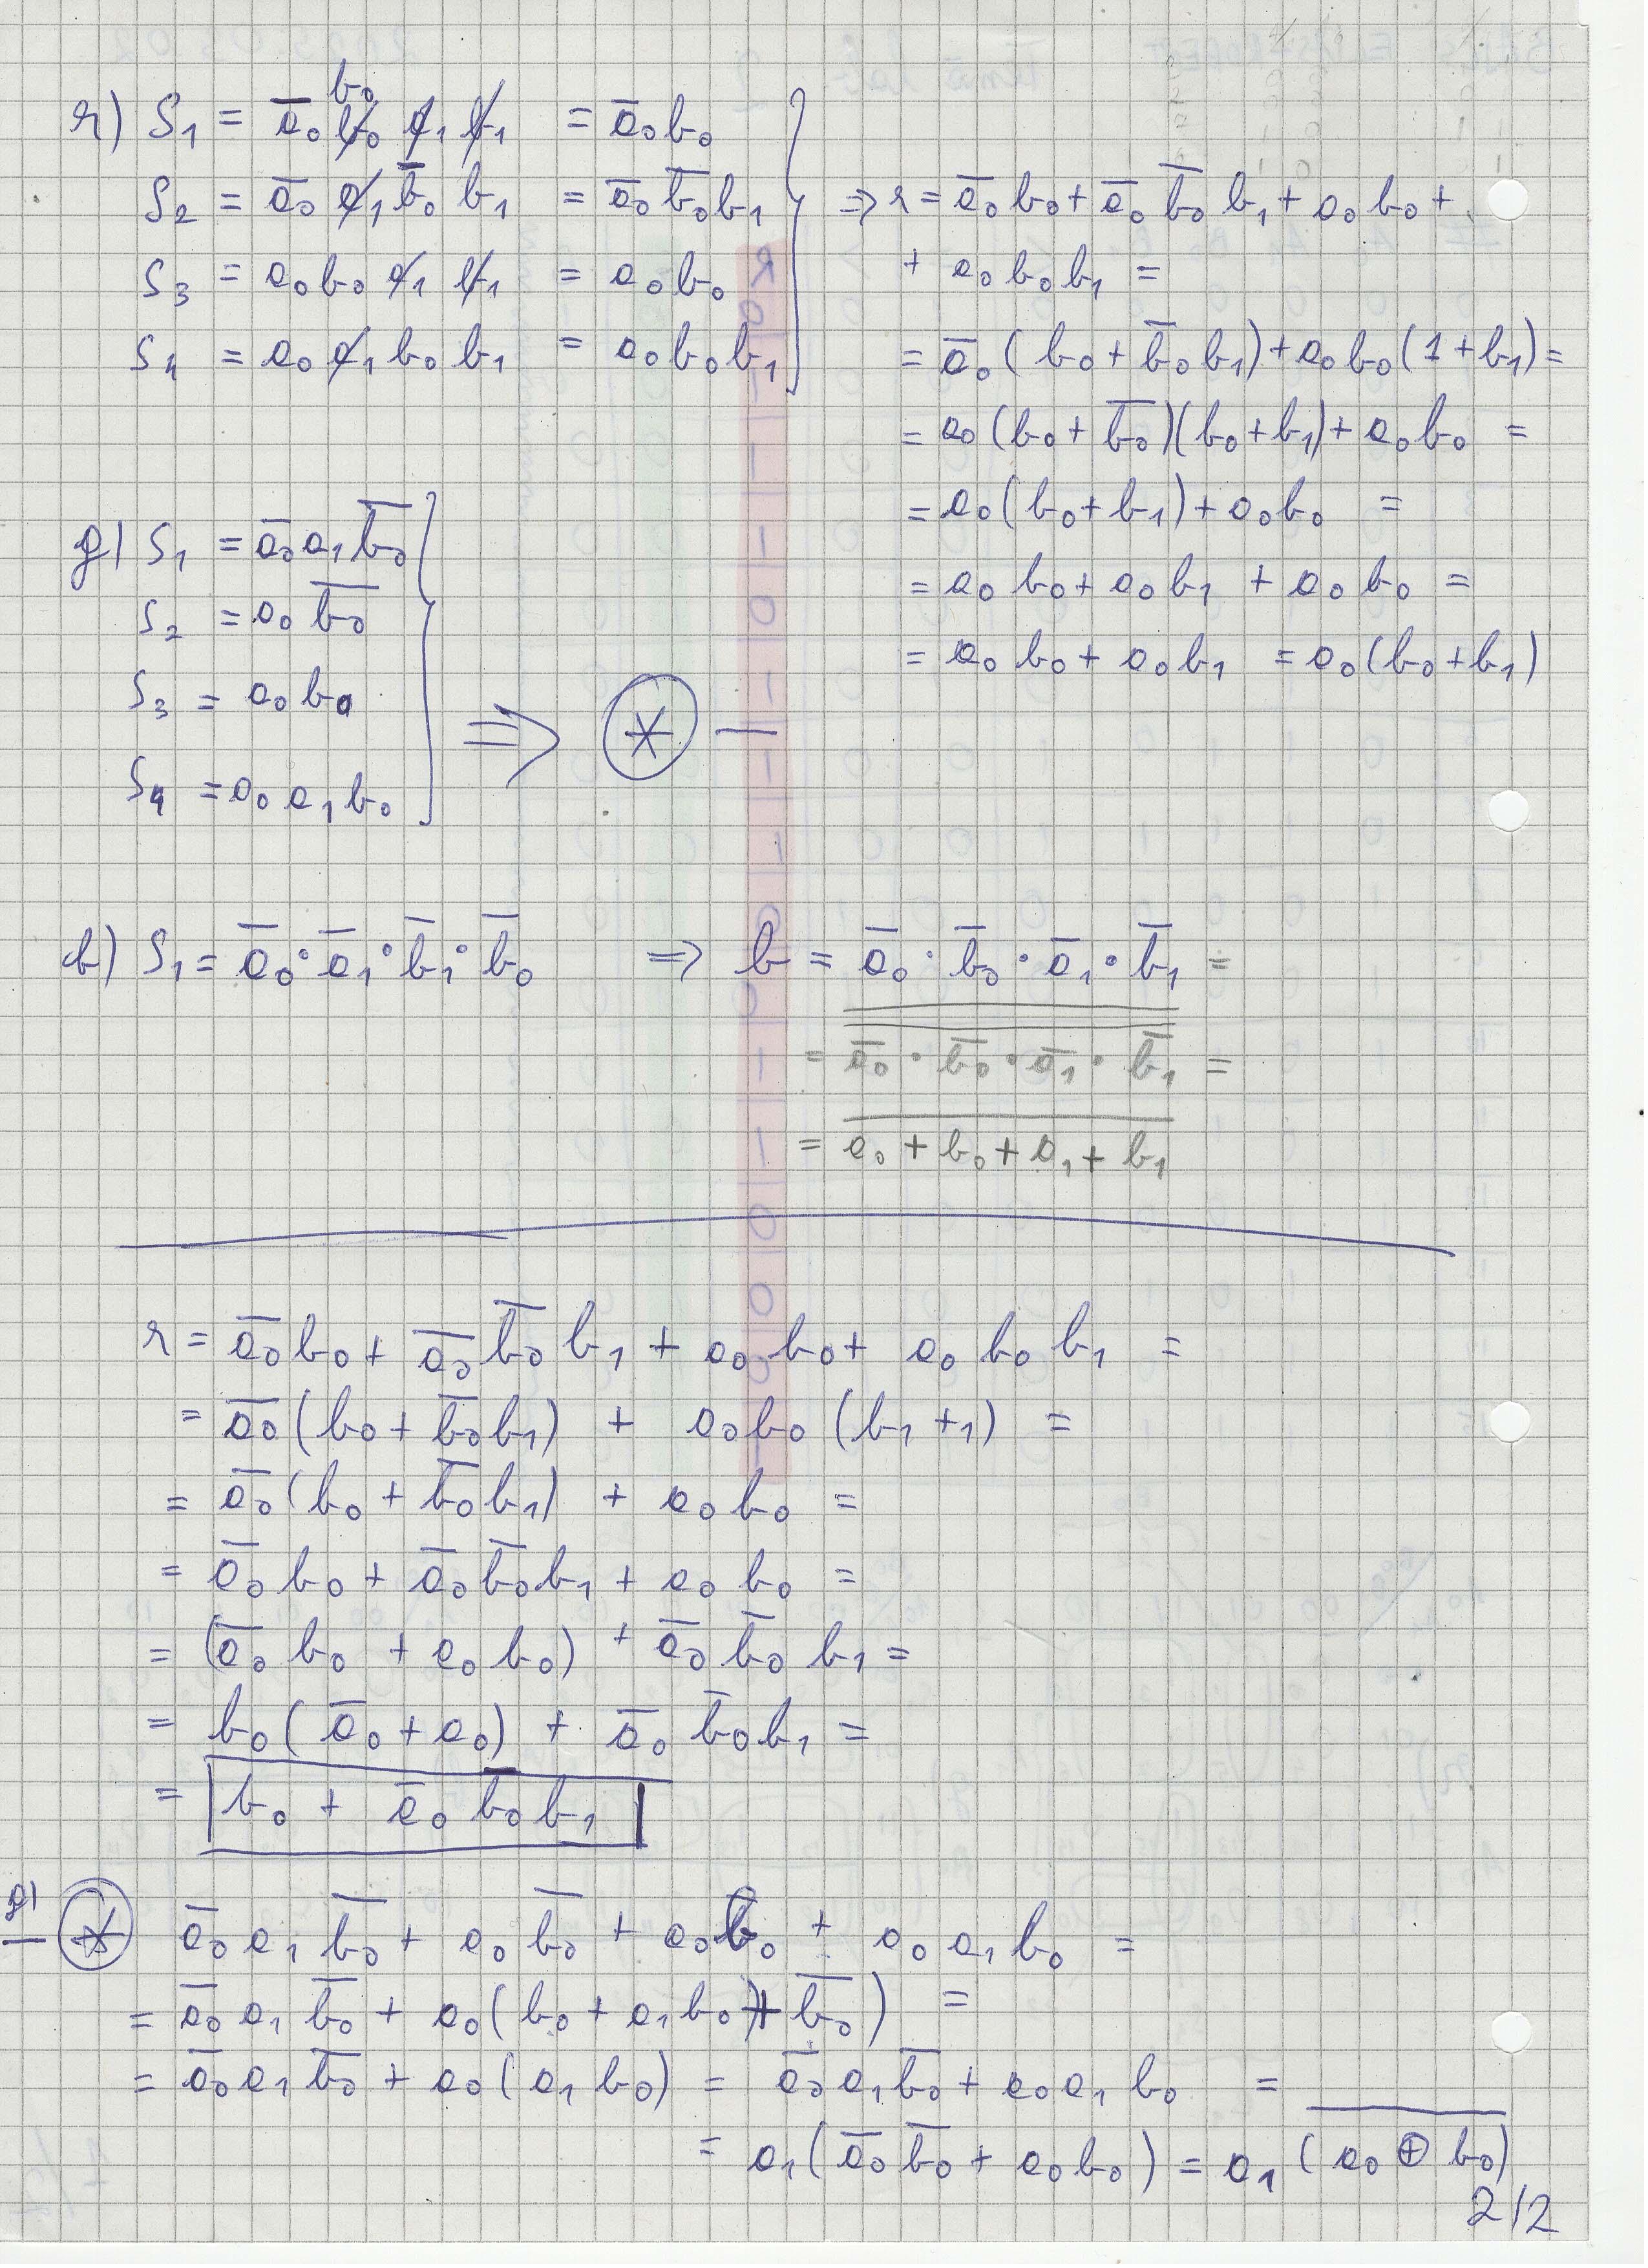 r) S₁ = a̅₀ b₀ b̶₀ a̶₁ b̶₁ = a̅₀b₀
S₂ = a̅₀ a̶₁ b̅₀ b₁ = a̅₀b̅₀b₁
S₃ = a₀b₀ a̶₁ b̶₁ = a₀b₀
S₄ = a₀ a̶₁ b₀ b₁ = a₀b₀b₁
⇒ r = a̅₀b₀ + a̅₀ b̅₀ b₁ + a₀b₀ +
+ a₀b₀b₁ =
= a̅₀(b₀ + b̅₀b₁) + a₀b₀(1+b₁) =
= a₀(b₀ + b̅₀)(b₀+b₁) + a₀b₀ =
= a₀(b₀+b₁) + a₀b₀ =
= a₀b₀ + a₀b₁ + a₀b₀ =
= a₀b₀ + a₀b₁ = a₀(b₀+b₁)
g) S₁ = a̅₀a₁b̅₀
S₂ = a₀b̅₀
S₃ = a₀b₀
S₄ = a₀a₁b₀
⇒ ⊛ —
b) S₁ = a̅₀·a̅₁·b̅₁·b̅₀ ⇒ b = a̅₀·b̅₀·a̅₁·b̅₁ =
= \overline{\overline{a̅₀·b̅₀·a̅₁·b̅₁}} =
= \overline{a₀ + b₀ + a₁ + b₁}
r = a̅₀b₀ + a̅₀b̅₀b₁ + a₀b₀ + a₀b₀b₁ =
= a̅₀(b₀ + b̅₀b₁) + a₀b₀(b₁+1) =
= a̅₀(b₀ + b̅₀b₁) + a₀b₀ =
= a̅₀b₀ + a̅₀b̅₀b₁ + a₀b₀ =
= (a̅₀b₀ + a₀b₀) + a̅₀b̅₀b₁ =
= b₀(a̅₀ + a₀) + a̅₀b̅₀b₁ =
= b₀ + a̅₀b̅₀b₁
g)
— ⊛ a̅₀a₁b̅₀ + a₀b̅₀ + a₀b₀ + a₀a₁b₀ =
= a̅₀a₁b̅₀ + a₀(b₀ + a₁b₀) + b̅₀) =
= a̅₀a₁b̅₀ + a₀(a₁b₀) = a̅₀a₁b̅₀ + a₀a₁b₀ =
= a₁(a̅₀b̅₀ + a₀b₀) = a₁\overline{(a₀ ⊕ b₀)}
2/2